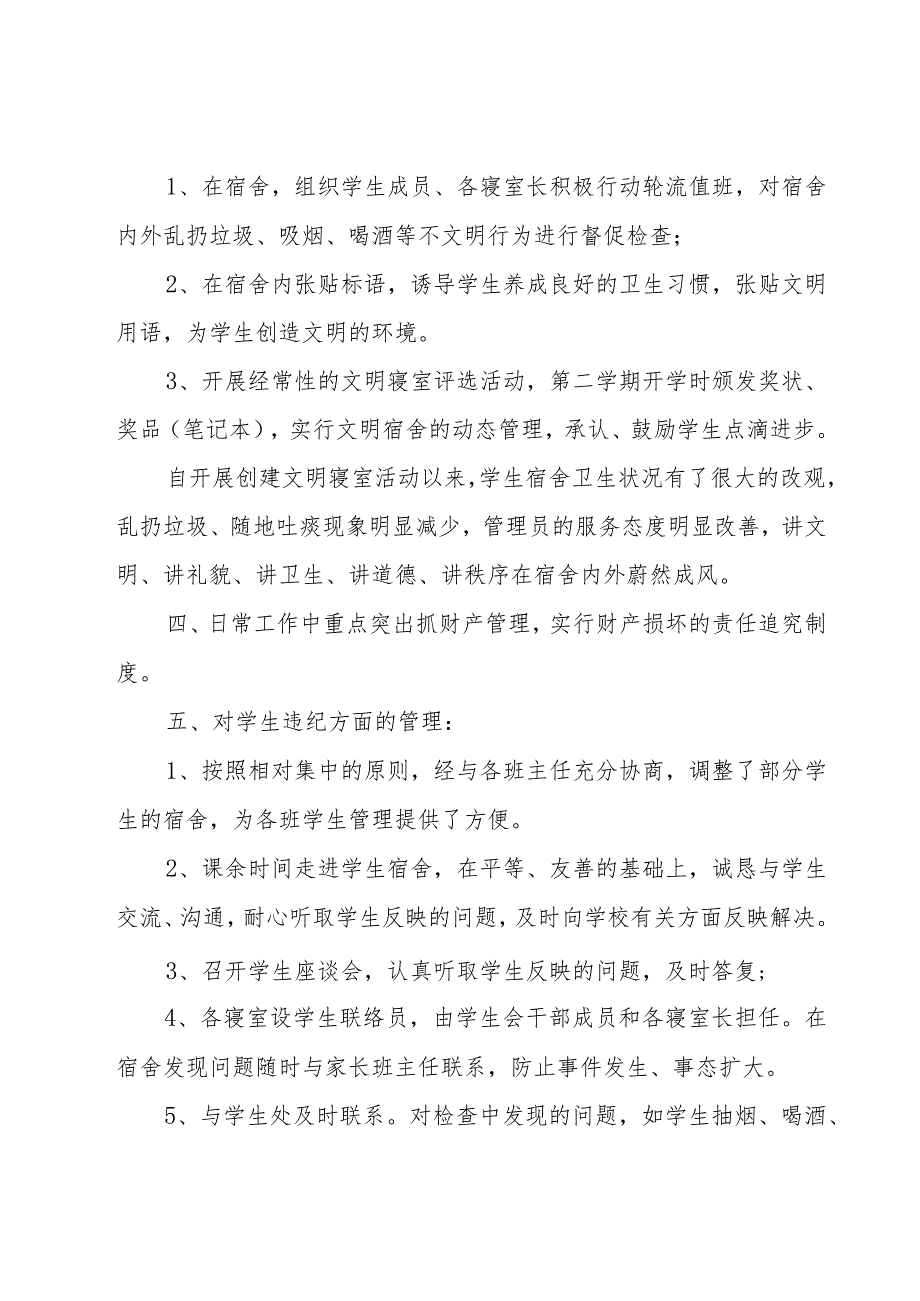 1、在宿舍，组织学生成员、各寝室长积极行动轮流值班，对宿舍
内外乱扔垃圾、吸烟、喝酒等不文明行为进行督促检查；
2、在宿舍内张贴标语，诱导学生养成良好的卫生习惯，张贴文明
用语，为学生创造文明的环境。
3、开展经常性的文明寝室评选活动，第二学期开学时颁发奖状、
奖品（笔记本），实行文明宿舍的动态管理，承认、鼓励学生点滴进步。
自开展创建文明寝室活动以来，学生宿舍卫生状况有了很大的改观，
乱扔垃圾、随地吐痰现象明显减少，管理员的服务态度明显改善，讲文
明、讲礼貌、讲卫生、讲道德、讲秩序在宿舍内外蔚然成风。
四、日常工作中重点突出抓财产管理，实行财产损坏的责任追究制
度。
五、对学生违纪方面的管理：
1、按照相对集中的原则，经与各班主任充分协商，调整了部分学
生的宿舍，为各班学生管理提供了方便。
2、课余时间走进学生宿舍，在平等、友善的基础上，诚恳与学生
交流、沟通，耐心听取学生反映的问题，及时向学校有关方面反映解决。
3、召开学生座谈会，认真听取学生反映的问题，及时答复；
4、各寝室设学生联络员，由学生会干部成员和各寝室长担任。在
宿舍发现问题随时与家长班主任联系，防止事件发生、事态扩大。
5、与学生处及时联系。对检查中发现的问题，如学生抽烟、喝酒、